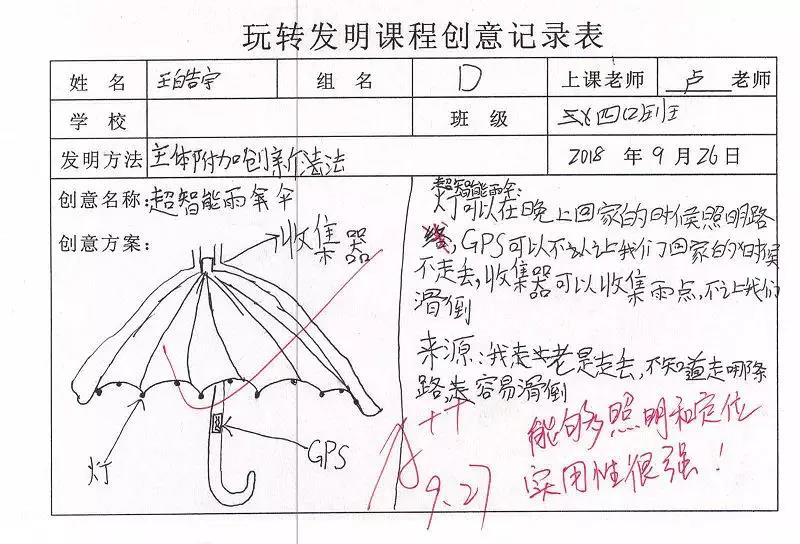 玩转发明课程创意记录表
姓名 王皓宇 组名 D 上课老师 卢 老师
学校 班级
发明方法 主体附加创新法 2018 年 9 月 26 日
创意名称:超智能雨伞
创意方案:
收集器
灯
GPS
超智能雨伞:
灯可以在晚上回家的时候照明路
线,GPS可以不让我们回家的时候
不走丢,收集器可以收集雨点,不让我们
滑倒
来源:我老是走丢,不知道走哪条
路,容易滑倒
A++
9.27
能够照明和定位
实用性很强!